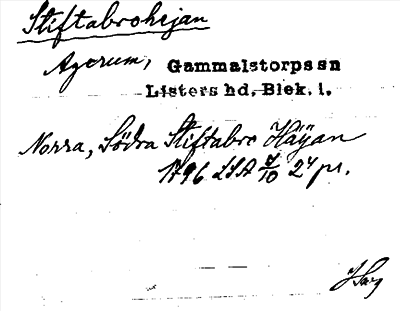 Stiftabrohejan
Agerum, Gammalstorps sn
Listers hd, Blek. l.
Norra, Södra Stiftabro Häÿan
1796 LSA 27 pr.